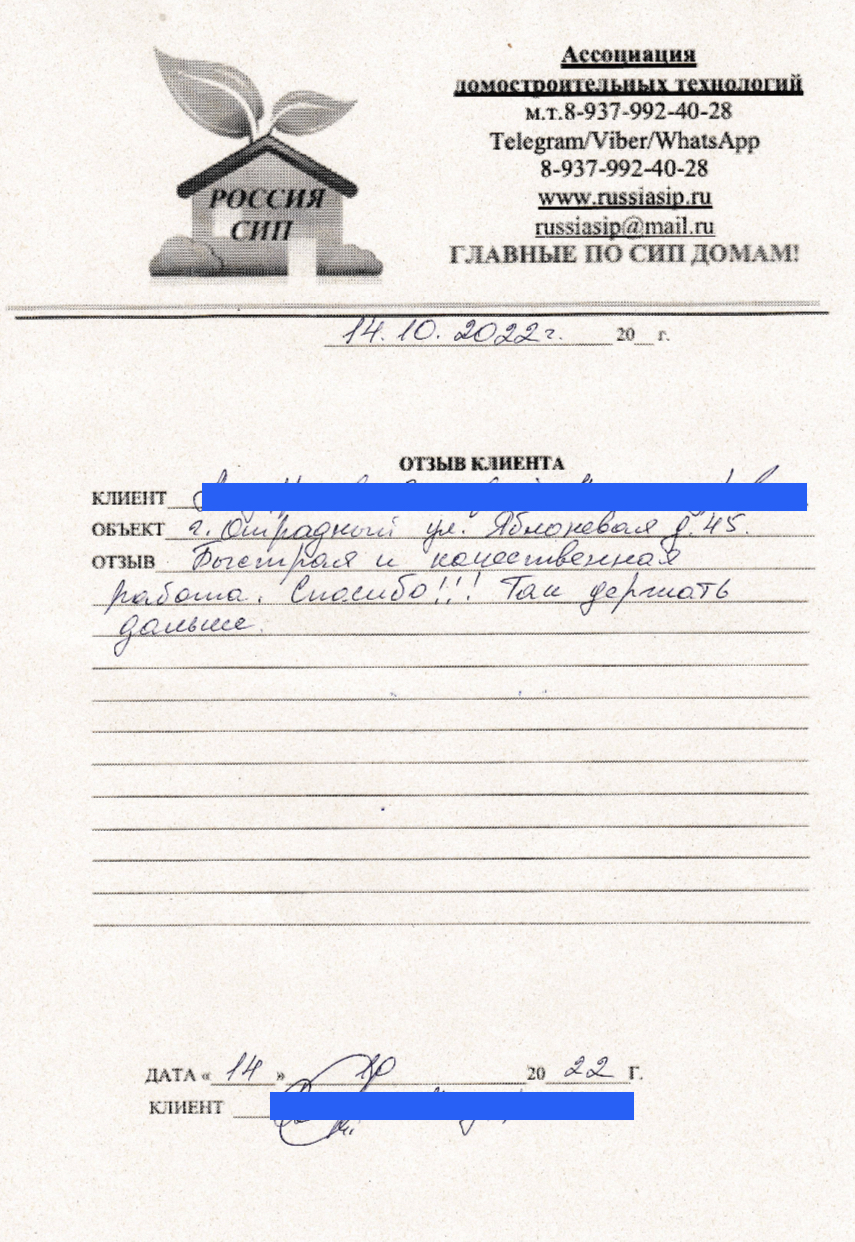 РОССИЯ
СИП
Ассоциация
домостроительных технологий
м.т.8-937-992-40-28
Telegram/Viber/WhatsApp
8-937-992-40-28
www.russiasip.ru
russiasip@mail.ru
ГЛАВНЫЕ ПО СИП ДОМАМ!
14.10.2022г. 20__ г.
ОТЗЫВ КЛИЕНТА
КЛИЕНТ
ОБЪЕКТ г. Отрадный ул. Яблоневая д.45.
ОТЗЫВ Быстрая и качественная
работа. Спасибо!!! Так держать
дальше.
ДАТА «14» 10 2022 Г.
КЛИЕНТ